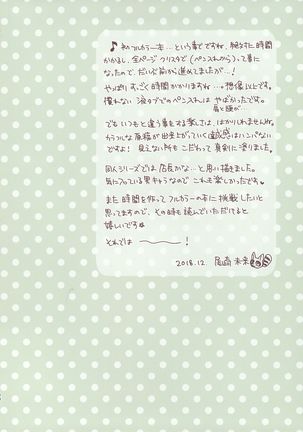 ♪初のフルカラー本…という事でですね、純粋に時間
かかるし、全ページ クリスタで(ペン入れから)って事に
なったので、だいぶ前から進めてましたが…!
やっぱり すごく時間かかりますね…。想像以上です。
慣れない 液タブでのペン入れは やばかったです。
肩と腰が
でも いつもと違う事をする楽しさは はかりしれませんね。
カラフルな原稿が出来上がっていく達成感はハンパない
ですよ! 見えない所も こだわって 真剣に塗りました。
同人シリーズでは 店長かな…と思い描きました。
気に入っている男キャラなので これも楽しかったです。
また 時間を作って フルカラーの本に挑戦したいと
思ってますので、その時も読んでいただけると
嬉しいです
それでは 〜 !
2018.12. 尾崎未来